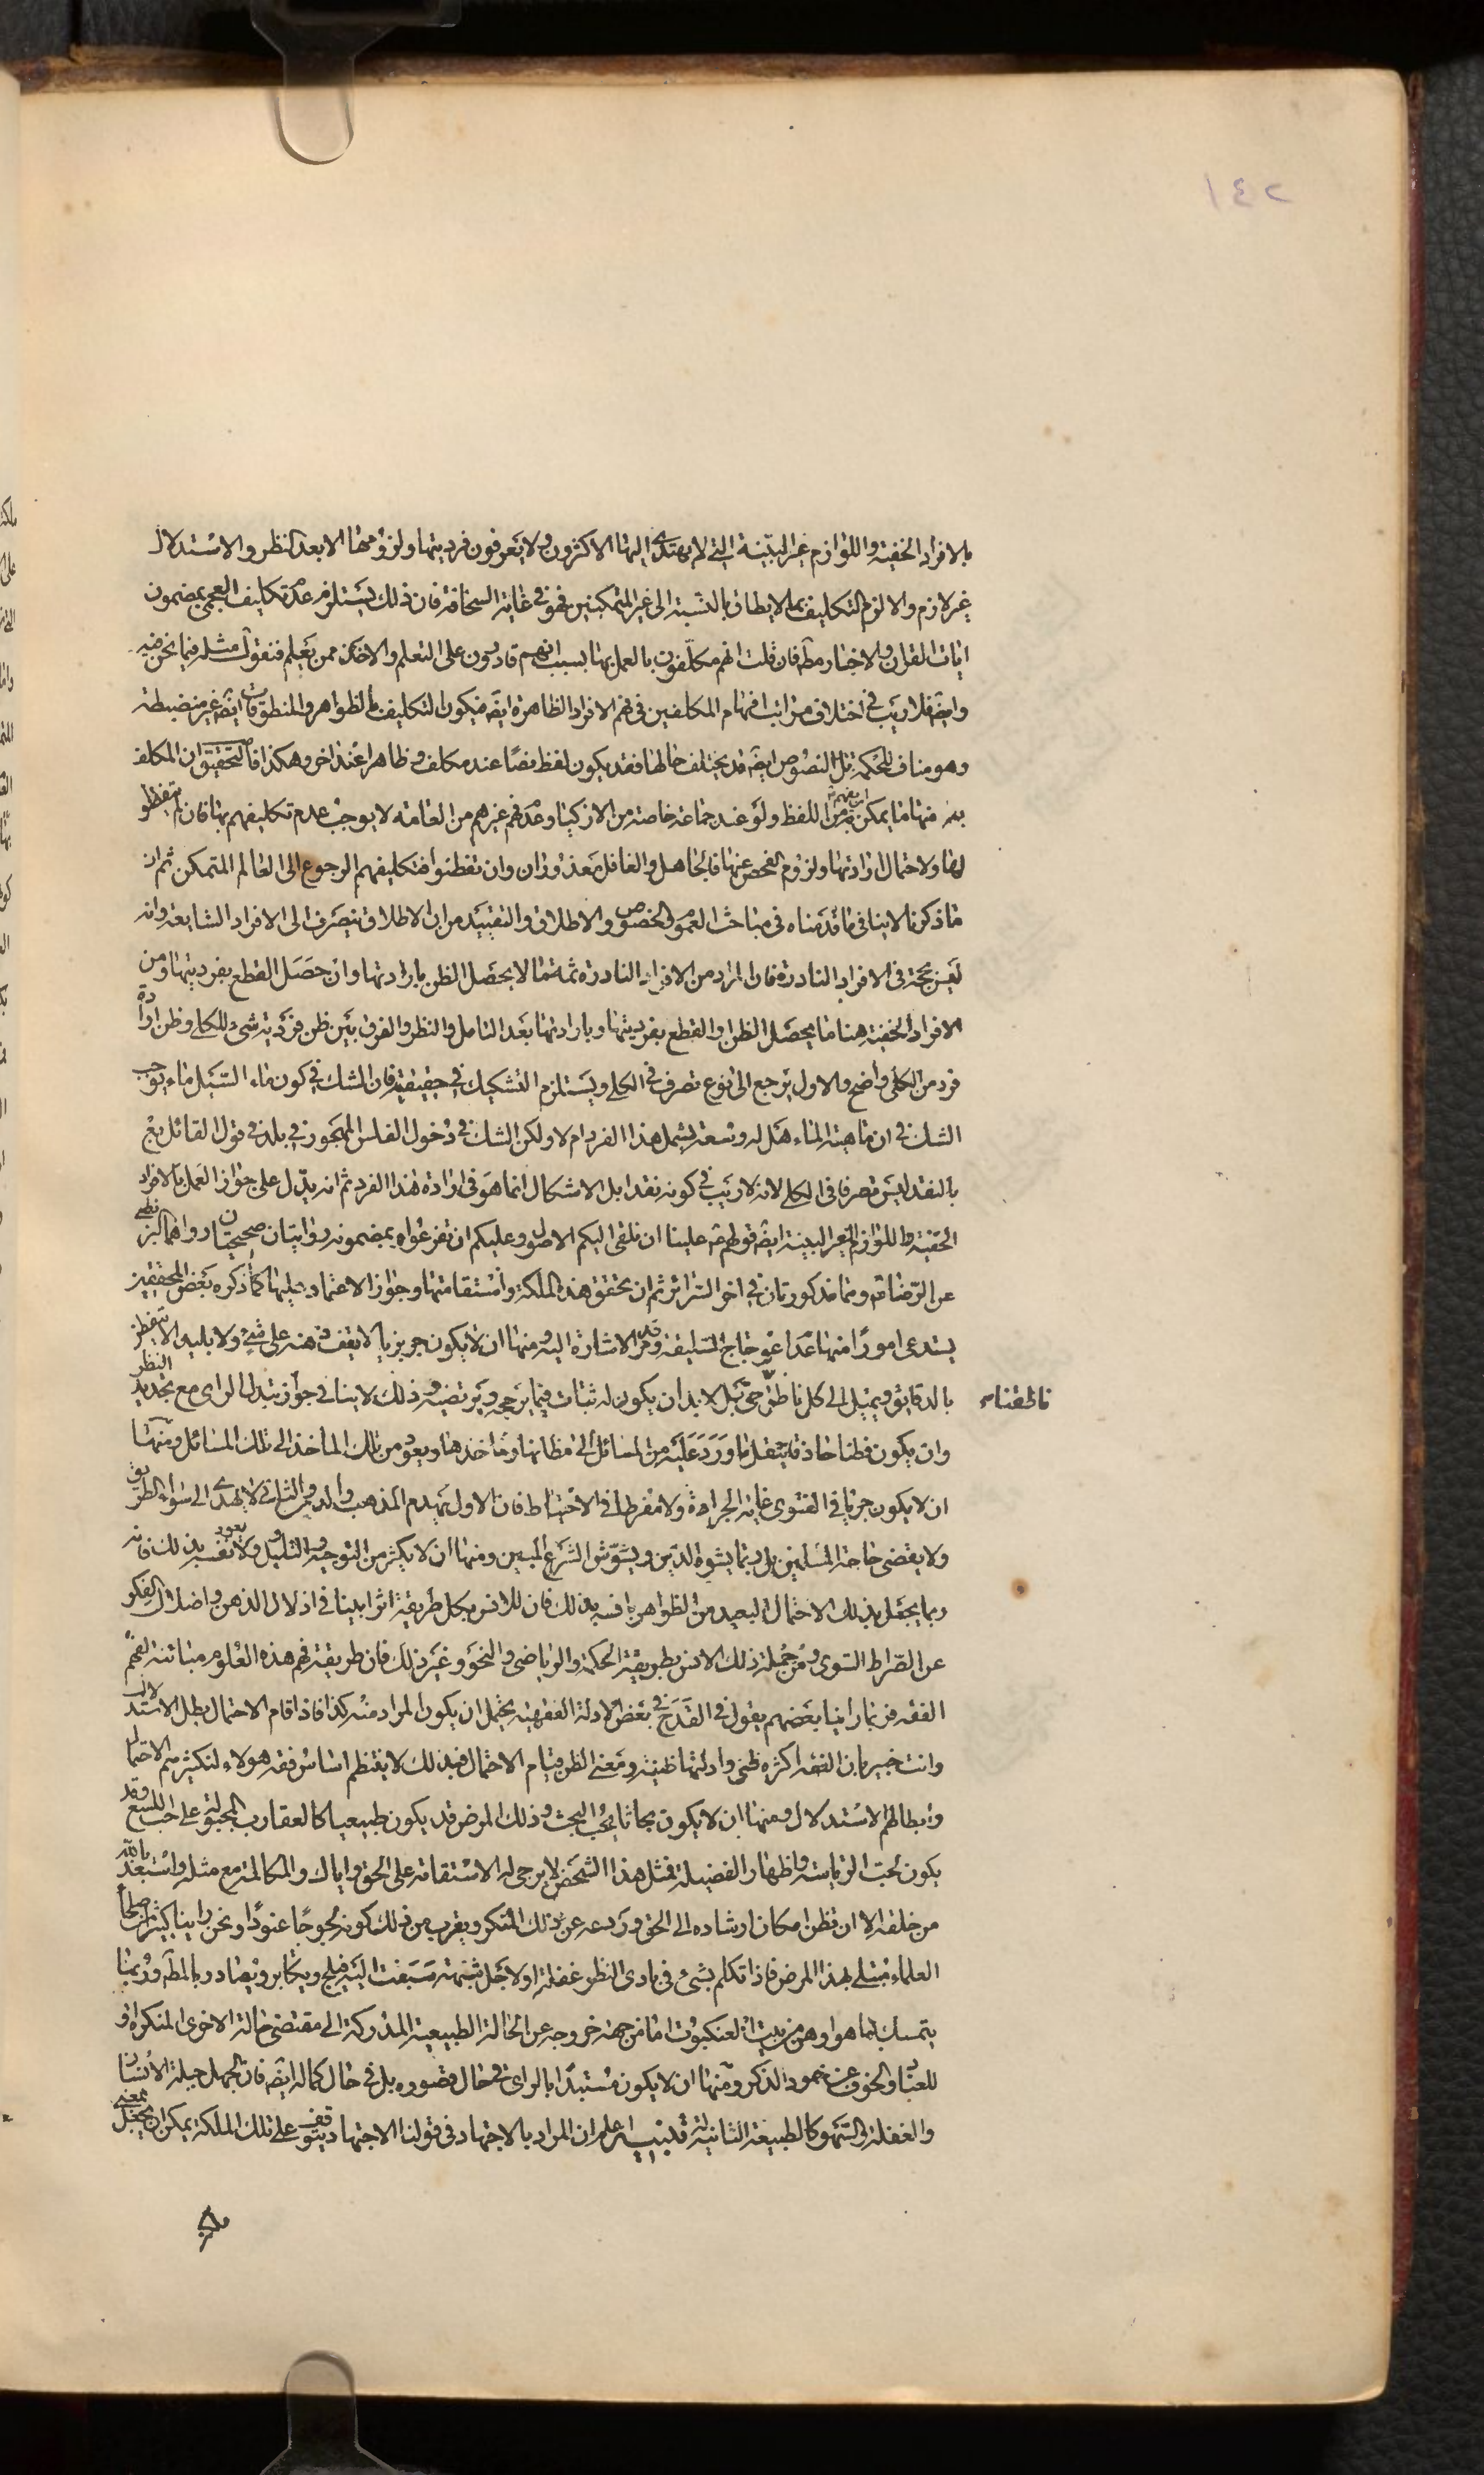 ١٤٢
بالافراد الخفية واللوازم غير البينة التي لا يهتدي اليها الاكثرون ولا يعرفون فرديتها ولزومها الا بعد النظر والاستدلال
غير لازم والا لزم التكليف بما لا يطاق بالنسبة الى غير المتمكنين فهو في غاية السخافة فان ذلك يستلزم عدم تكليف العجمي بمضمون
ايات القران والاخبار مطّ فان قلت انهم مكلفون بالعمل بها بسبب انهم قادرون على التعلم والاخذ ممن يعلم فنقول مثله فيما نحن فيه
وايضّ فلا ريب في اختلاف مراتب افهام المكلفين في فهم الافراد الظاهرة ايضّ فيكون التكليف بالظواهر والمنطوقات ايضّ غير منضبطة
وهو مناف للحكمة بل النصوص ايضّ قد يختلف حالها فقد يكون لفظ نصًا عند مكلف وظاهرا عند اخر وهكذا فالتحقيق ان المكلف
به منها ما يمكن ان يفهم من اللفظ ولو عند جماعة خاصة من الاذكيا وعدم فهم غيرهم من العامة لا يوجب عدم تكليفهم بها فان لم يتفطنوا
لها ولاحتمال ارادتها ولزوم الفحص عنها فالجاهل والغافل معذوران وان تفطنوا فتكليفهم الرجوع الى العالم المتمكن ثم ان
ما ذكرنا لا ينافي ما قدمناه في مباحث العموم والخصوص والاطلاق والتقييد من ان الاطلاق ينصرف الى الافراد الشايعة وانه
ليس بحجة في الافراد النادرة فان المراد من الافراد النادرة ثمة ما لا يحصل الظن بارادتها وان حصل القطع بفرديتها ومن
الافراد الخفية هنا ما يحصل الظن او القطع بفرديتها وبارادتها بعد التامل والنظر والفرق بين ظن فردية شيء للكلي وظن ارادة
فرد من الكلي واضح والاول يرجع الى نوع تصرف في الكلي ويستلزم التشكيك في حقيقته فان الشك في كون ماء السيل ماء يوجب
الشك في ان ماهية الماء هل له وسعة يشمل هذا الفرد ام لا ولكن الشك في دخول الفلس المهجور في بلد في قول القائل بع
بالنقد ليس تصرفا في الكلي لانه لا ريب في كونه نقدا بل الاشكال انما هو في ارادة هذا الفرد ثم انه يدل على جواز العمل بالافراد
الخفية واللوازم الغير البينة ايضّ قولهم ع علينا ان نلقي اليكم الاصول وعليكم ان تفرعوا وبمضمونه روايتان صحيحتان رواهما البزنطي
عن الرضا ع وهما مذكورتان في اخر السرائر ثم ان تحقق هذه الملكة واستقامتها وجواز الاعتماد عليها كما ذكره بعض المحققين
يستدعي امورًا منها عدم اعوجاج السليقة وقد مر الاشارة اليه ومنها ان لا يكون جربزيا لا يقف ذهنه على شيء ولا بليدا لا يتفطن
بالدقايق ويميل الى كل ناطق حتى بل لا بد ان يكون له ثبات فيما يرجحه ويرتضيه وذلك لا ينافي جواز تبدل الراي مع تجديد النظر
وان يكون فطنا حاذقا ينقل ما ورد عليه من المسائل الى مظانها وماخذها ويعود من تلك الماخذ الى تلك المسائل ومنها
ان لا يكون جريا في الفتوى غاية الجراءة ولا مفرطا في الاحتياط فان الاول يهدم المذهب والدين والثاني لا يهدي الى سواء الطريق
ولا يقضي حاجة المسلمين بل ربما يشوه الدين ويشوش الشرع المبين ومنها ان لا يكثر من التوجيه والتاويل ولا يعود نفسه بذلك فانه
ربما يجعل بذلك الاحتمال البعيد من الظواهر بانسه بذلك فان للانس بكل طريقة اثرا بينا في اذلال الذهن واضلال الفكر
عن الصراط السوي ومن جملة ذلك الانس بطريقة الحكمة والرياضي والنحو وغير ذلك فان طريقة فهم هذه العلوم مباينة لفهم
الفقه فربما راينا بعضهم يقول في القدح في بعض الادلة الفقهية يحتمل ان يكون المراد منه كذا فاذا قام الاحتمال بطل الاستدلال
وانت خبير بان الفقه اكثره ظني وادلتها ظنية ومعنى الظن قيام الاحتمال فبذلك لا ينتظم اساس فقه هولاء لتكثيرهم الاحتمال
وابطالهم الاستدلال ومنها ان لا يكون بحاثا يحب البحث وذلك المرض قد يكون طبيعيا كالعقارب المجبولة على حب اللسع وقد
يكون لحب الرياسة واظهار الفضيلة فمثل هذا الشخص لا يرجى له الاستقامة على الحق واياك والمكالمة مع مثله واستعذ بالله
من خلقه الا ان تظن امكان ارشاده الى الحق وردعه عن ذلك المنكر ويقرب من ذلك كونه لجوجًا عنودًا ونحن راينا كثيرا من صلحاء
العلماء مبتلى بهذا المرض فاذا تكلم بشيء في بادي النظر غفلة او لاجل شبهة سبقت اليه فيلج ويكابر ويصادر بالمطّ وربما
يتمسك بما هو اوهن من بيت العنكبوت اما من جهة خروجه عن الحالة الطبيعية المدركة الى مقتضى حالة الاخرى المنكرة او
للعناد والخوف عن خمود الذكر ومنها ان لا يكون مستبدًا بالراي في حال قصوره بل في حال كماله ايضّ فان الجهل جبلة الانسان
والغفلة والسهو كالطبيعة الثانية له تذنيب اعلم ان المراد بالاجتهاد في قولنا الاجتهاد يتوقف على تلك الملكة يمكن ان يجعل بمعنى